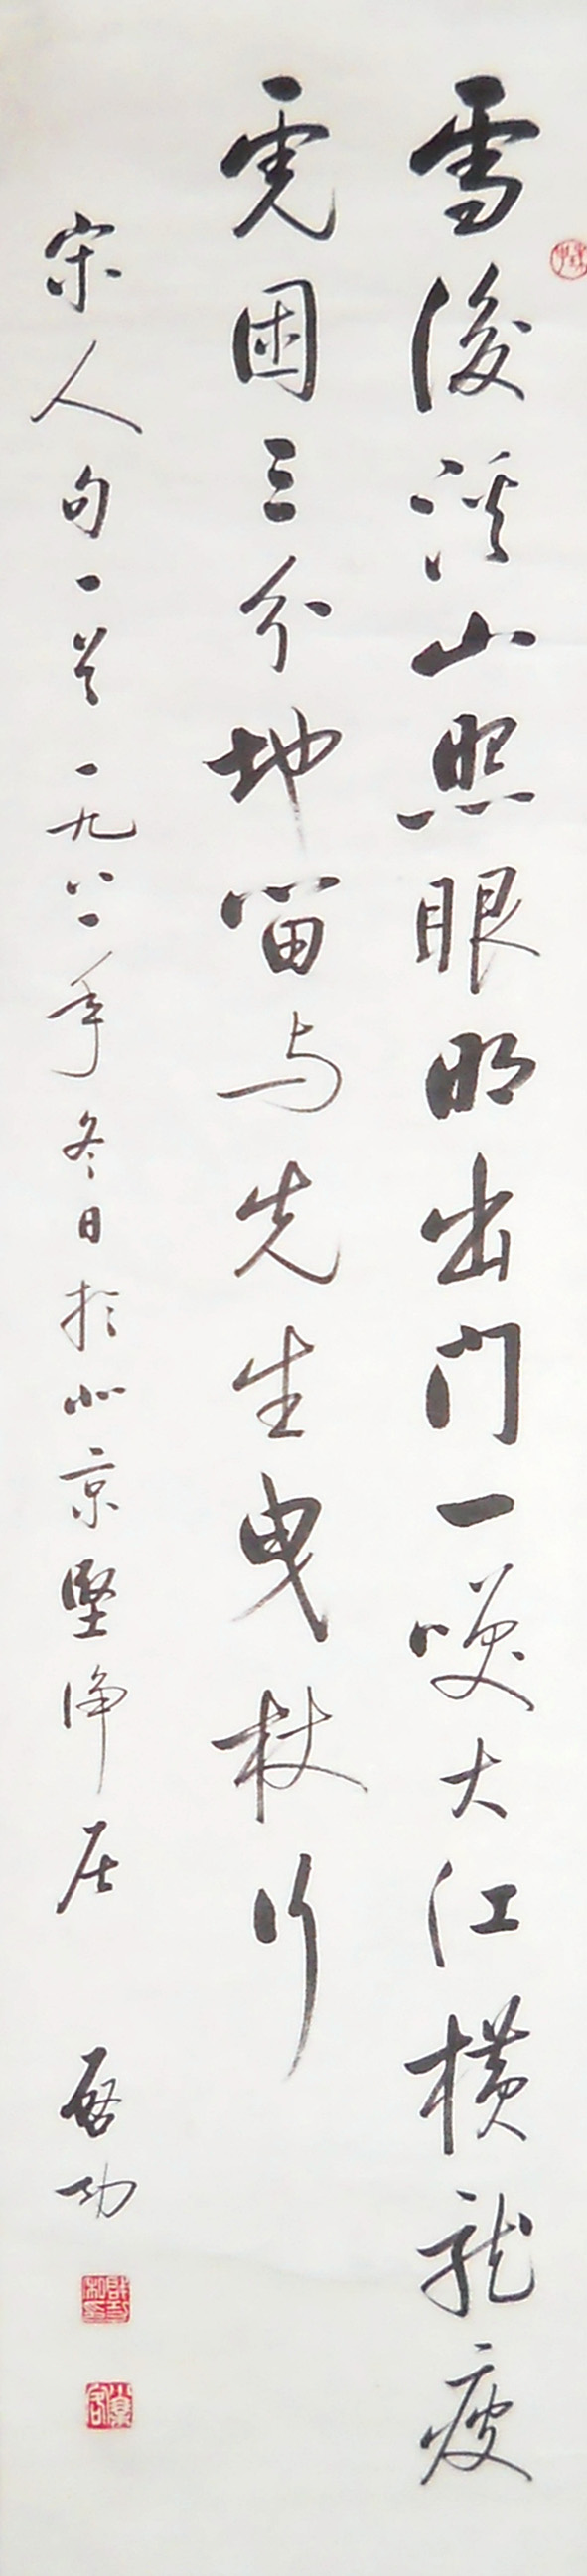 雪後溪山照眼明出门一笑大江横龙瘦
虎困三分地留与先生曳杖行
宋人句一首一九八一年冬日於北京堅净居
启功